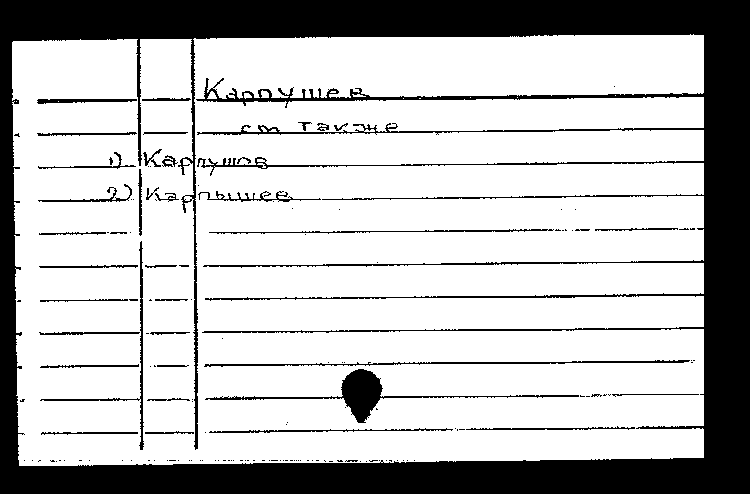 Карпушев
см также
1) Карпушов
2) Карпышев